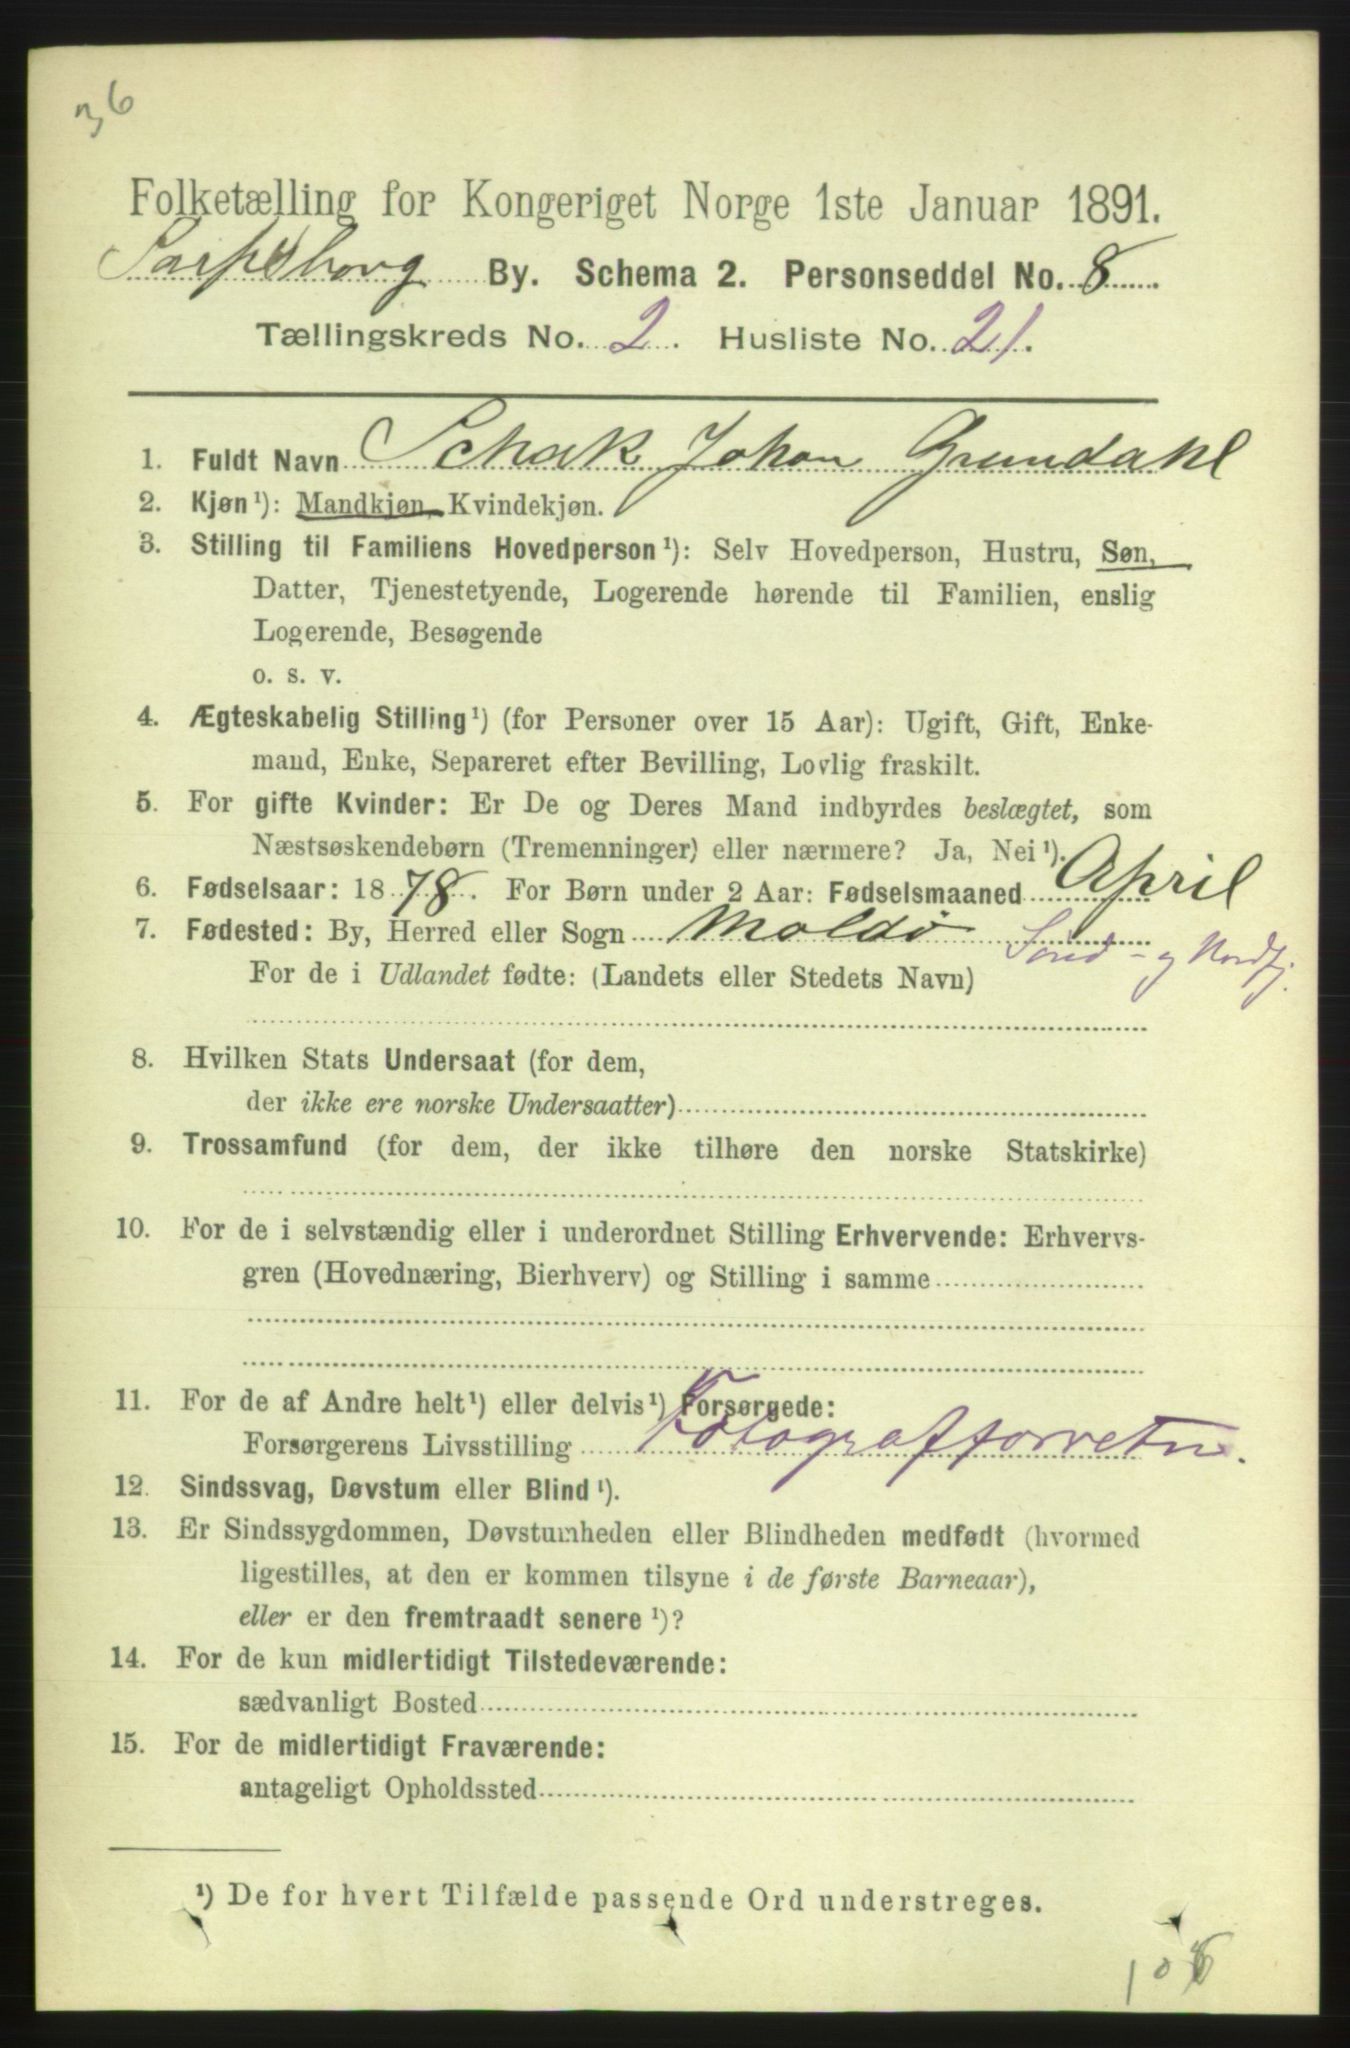 36
Folketælling for Kongeriget Norge 1ste Januar 1891.
Sarpsborg By. Schema 2. Personseddel No. 8.
Tællingskreds No. 2. Husliste No. 21.
1. Fuldt Navn Schak Johan Grundahl
2. Kjøn¹): Mandkjøn, Kvindekjøn.
3. Stilling til Familiens Hovedperson¹): Selv Hovedperson, Hustru, Søn,
Datter, Tjenestetyende, Logerende hørende til Familien, enslig
Logerende, Besøgende
o. s. v.
4. Ægteskabelig Stilling¹) (for Personer over 15 Aar): Ugift, Gift, Enke-
mand, Enke, Separeret efter Bevilling, Lovlig fraskilt.
5. For gifte Kvinder: Er De og Deres Mand indbyrdes beslægtet, som
Næstsøskendebørn (Tremenninger) eller nærmere? Ja, Nei¹).
6. Fødselsaar: 1878. For Børn under 2 Aar: Fødselsmaaned April
7. Fødested: By, Herred eller Sogn Moldø Sønd- og Nordfj.
For de i Udlandet fødte: (Landets eller Stedets Navn)
8. Hvilken Stats Undersaat (for dem,
der ikke ere norske Undersaatter)
9. Trossamfund (for dem, der ikke tilhøre den norske Statskirke)
10. For de i selvstændig eller i underordnet Stilling Erhvervende: Erhvervs-
gren (Hovednæring, Bierhverv) og Stilling i samme
11. For de af Andre helt¹) eller delvis¹) Forsørgede:
Forsørgerens Livsstilling Fotografforretn.
12. Sindssvag, Døvstum eller Blind¹).
13. Er Sindssygdommen, Døvstumheden eller Blindheden medfødt (hvormed
ligestilles, at den er kommen tilsyne i de første Barneaar),
eller er den fremtraadt senere¹)?
14. For de kun midlertidigt Tilstedeværende:
sædvanligt Bosted
15. For de midlertidigt Fraværende:
antageligt Opholdssted
¹) De for hvert Tilfælde passende Ord understreges.